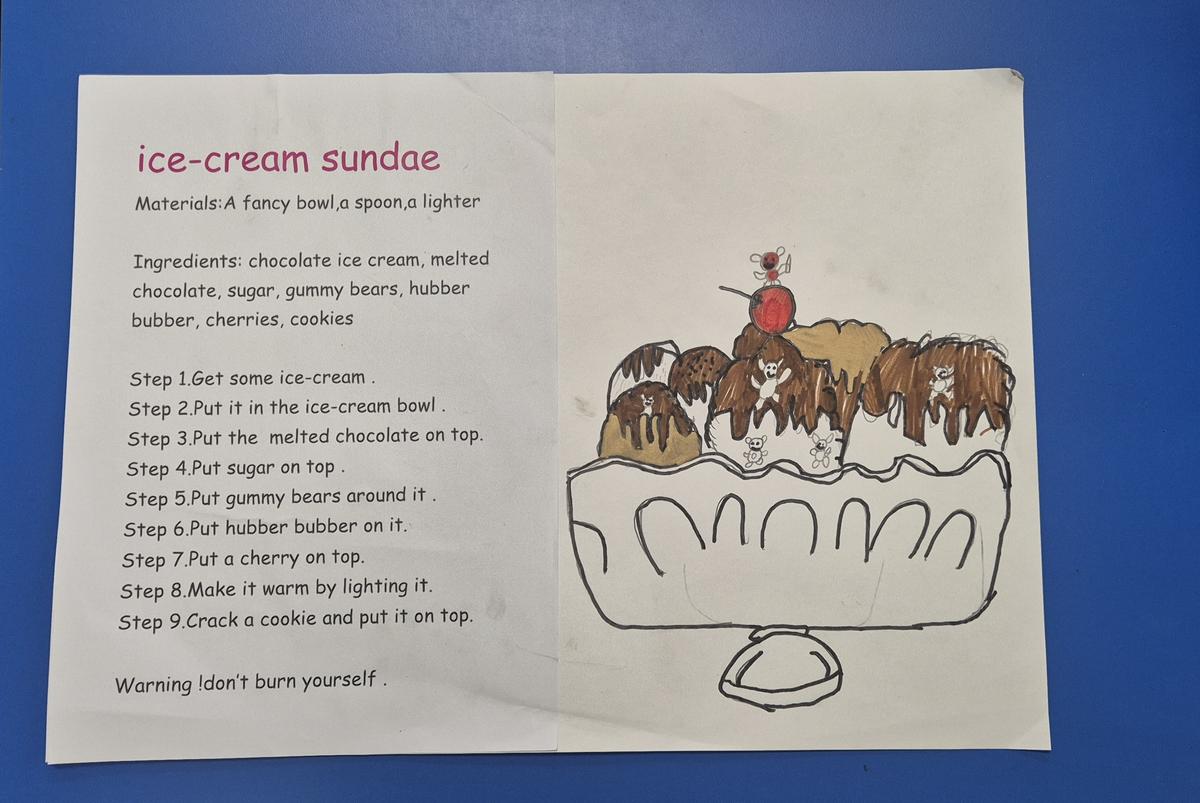 ice-cream sundae
Materials:A fancy bowl,a spoon,a lighter
Ingredients: chocolate ice cream, melted
chocolate, sugar, gummy bears, hubber
bubber, cherries, cookies
Step 1.Get some ice-cream .
Step 2.Put it in the ice-cream bowl .
Step 3.Put the  melted chocolate on top.
Step 4.Put sugar on top .
Step 5.Put gummy bears around it .
Step 6.Put hubber bubber on it.
Step 7.Put a cherry on top.
Step 8.Make it warm by lighting it.
Step 9.Crack a cookie and put it on top.
Warning !don't burn yourself .